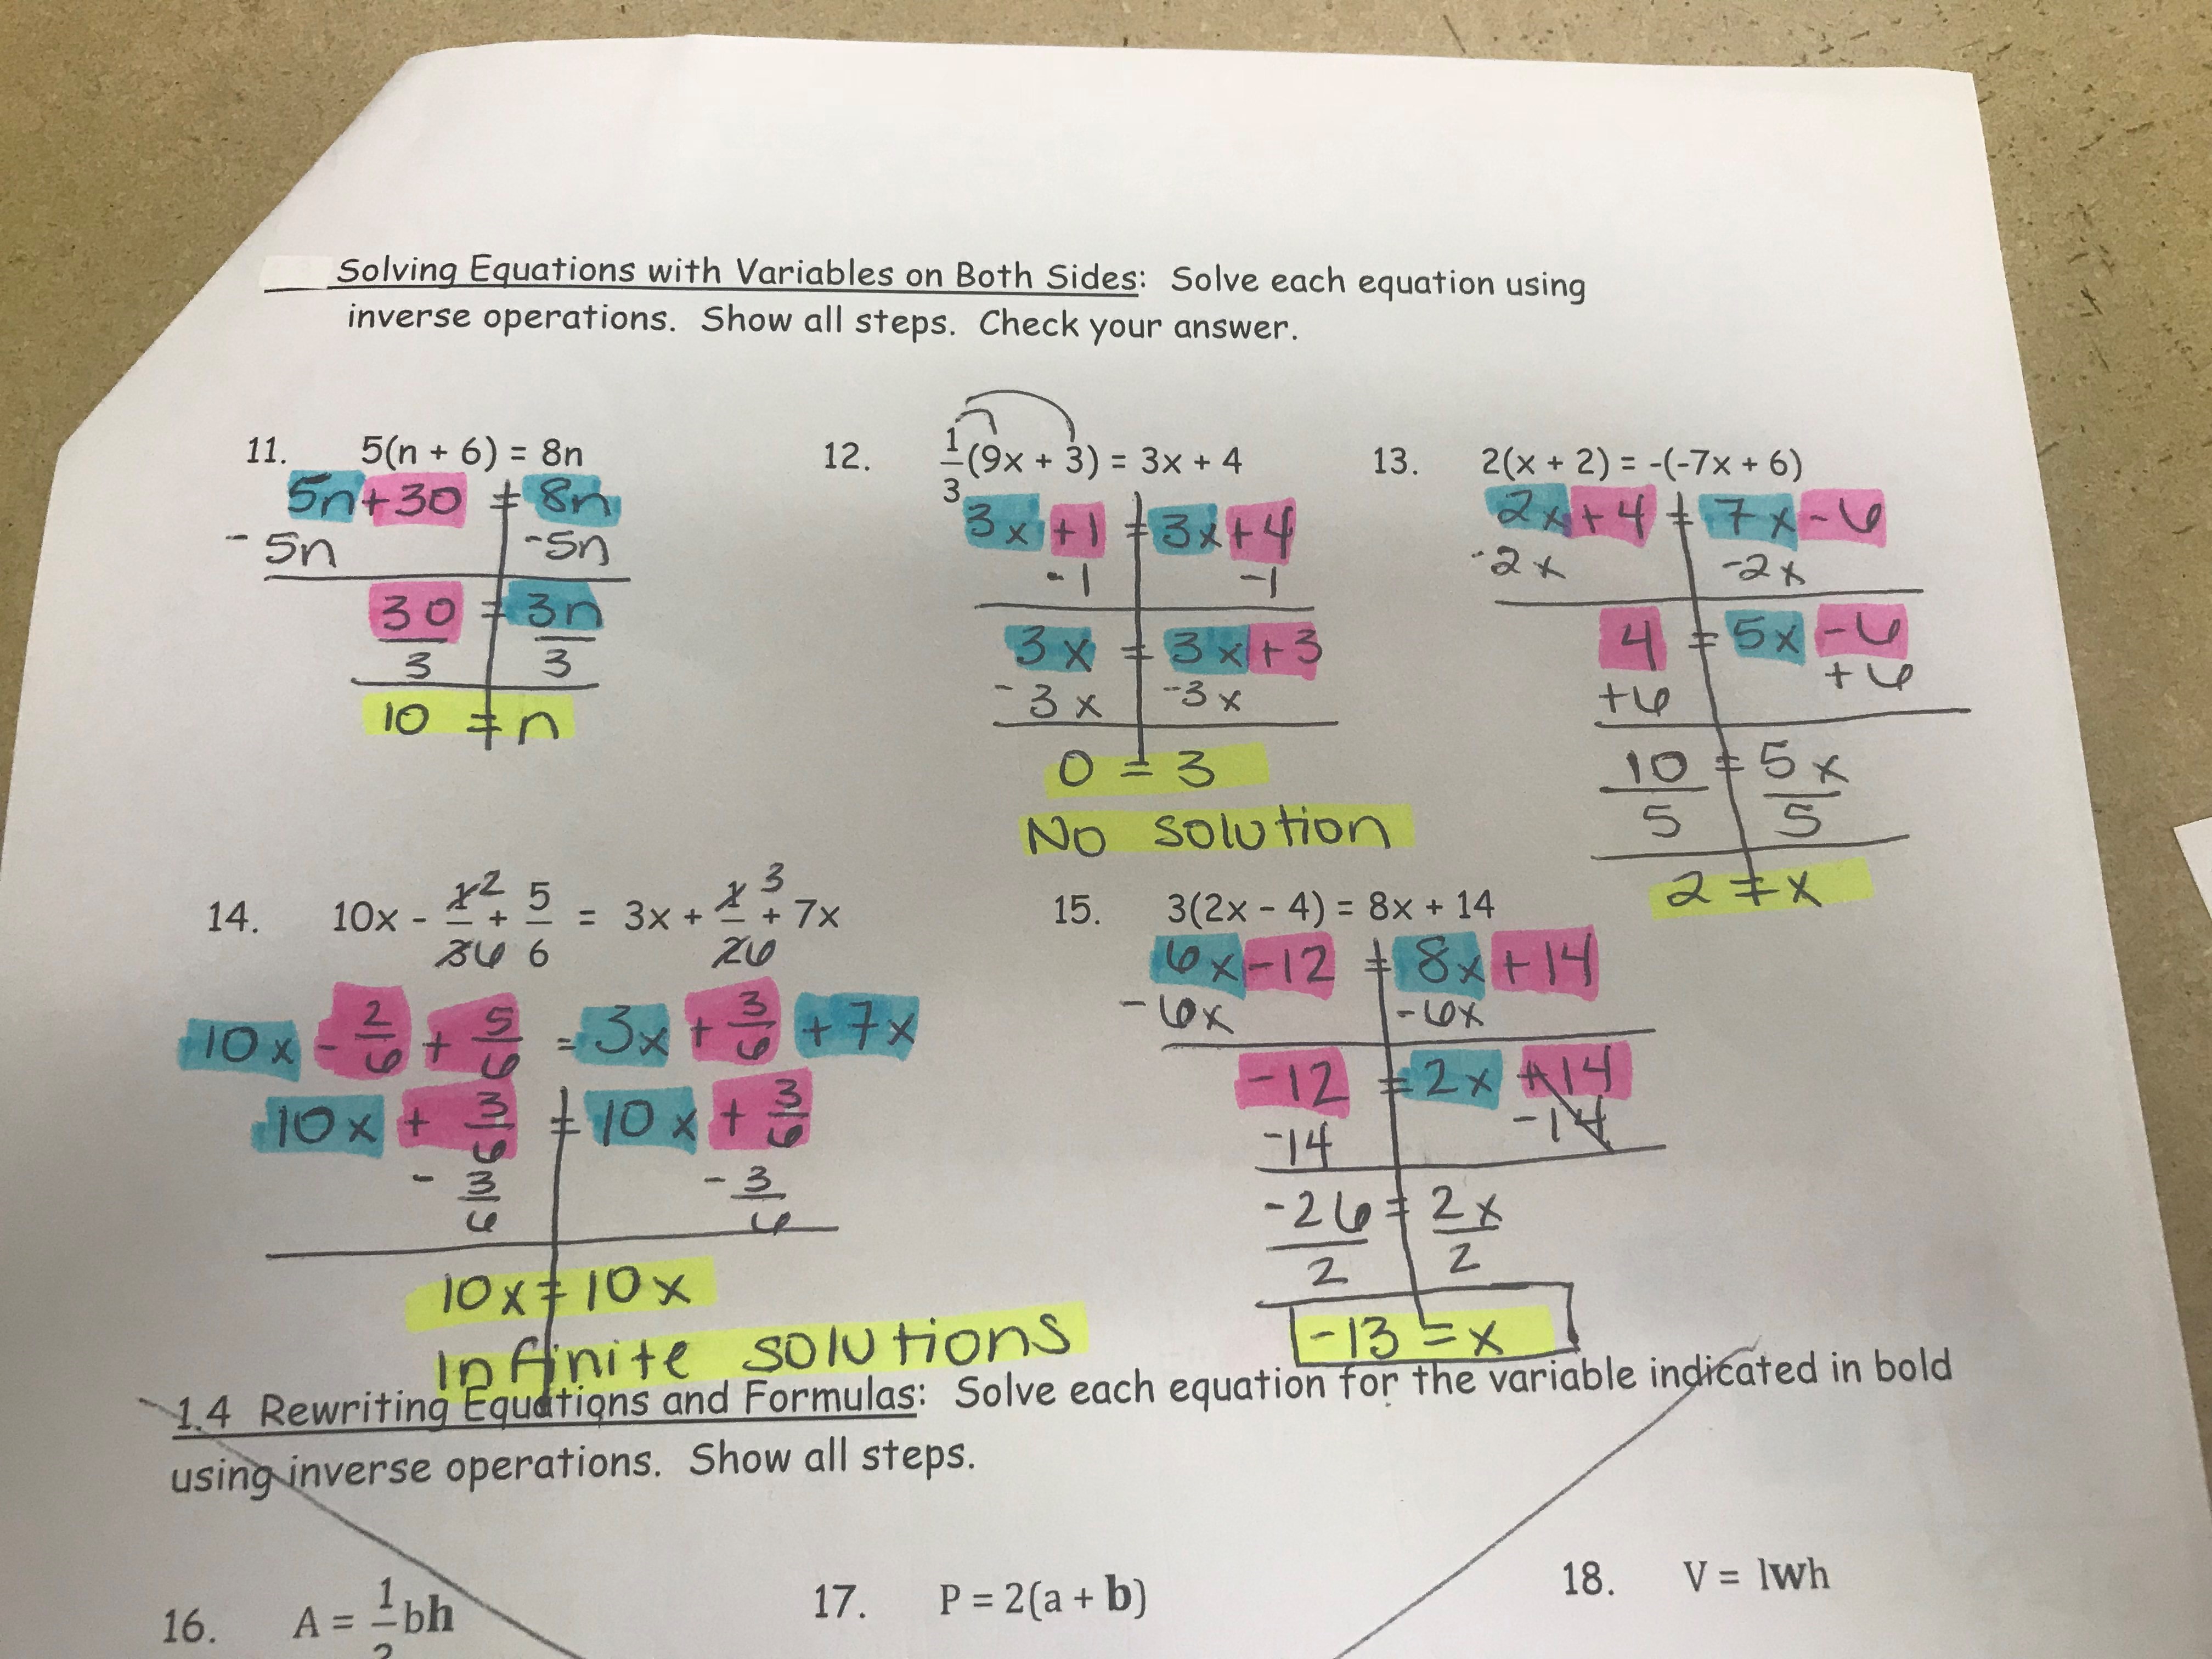 Solving Equations with Variables on Both Sides: Solve each equation using
inverse operations. Show all steps. Check your answer.
11. 5(n + 6) = 8n
5n+30 = 8n
-5n -5n
30 = 3n
3 3
10 = n
12. 1/3(9x + 3) = 3x + 4
3x+1 = 3x+4
-1 -1
3x = 3x+3
-3x -3x
0 = 3
No solution
13. 2(x + 2) = -(-7x + 6)
2x+4 = 7x-6
-2x -2x
4 = 5x-6
+6 +6
10 = 5x
5 5
2 = x
14. 10x - 1/3 + 5/6 = 3x + 1/2 + 7x
2 3
6 6
10x - 2/6 + 5/6 = 3x + 3/6 + 7x
10x + 3/6 = 10x + 3/6
- 3/6 - 3/6
10x = 10x
Infinite solutions
15. 3(2x - 4) = 8x + 14
6x-12 = 8x+14
-6x -6x
-12 = 2x +14
-14 -14
-26 = 2x
2 2
-13 = x
1.4 Rewriting Equations and Formulas: Solve each equation for the variable indicated in bold
using inverse operations. Show all steps.
16. A = 1/2bh
17. P = 2(a + b)
18. V = lwh